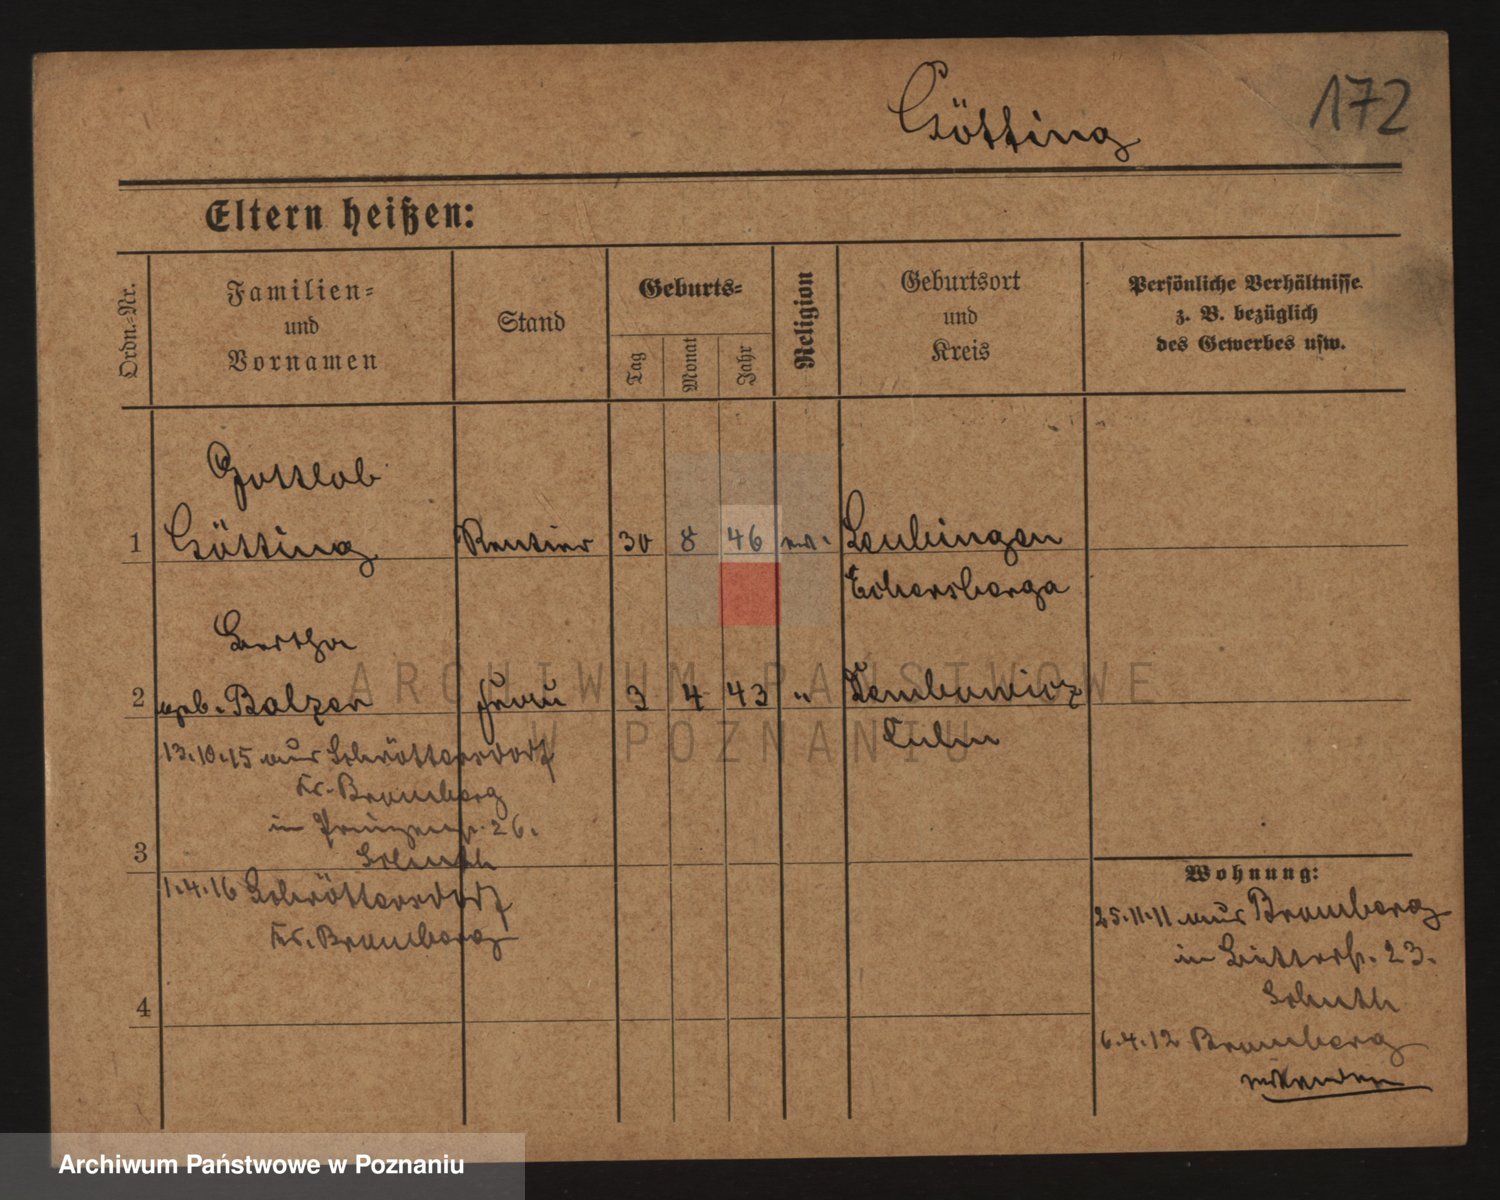 Götting
172
Eltern heißen:
Ordn.-Nr.
Familien-
und
Vornamen
Stand
Geburts-
Tag
Monat
Jahr
Religion
Geburtsort
und
Kreis
Persönliche Verhältnisse
z. B. bezüglich
des Gewerbes usw.
Gottlob
1 Götting Rentier 30 8 46 ev. Leubingen
Eckersberga
Bertha
2 geb. Balzer Frau 3 4 43 " Dembowicz
Culm
13.10.15 aus Schröttersdorf
Kr. Bromberg
in Prinzenstr. 26.
3
Schuth
1.4.16 Schröttersdorf
Kr. Bromberg
4
Wohnung:
25.11.11 aus Bromberg
in Bitterstr. 23.
Schuth
6.4.12 Bromberg
ARCHIWUM PAŃSTWOWE
W POZNANIU
Archiwum Państwowe w Poznaniu